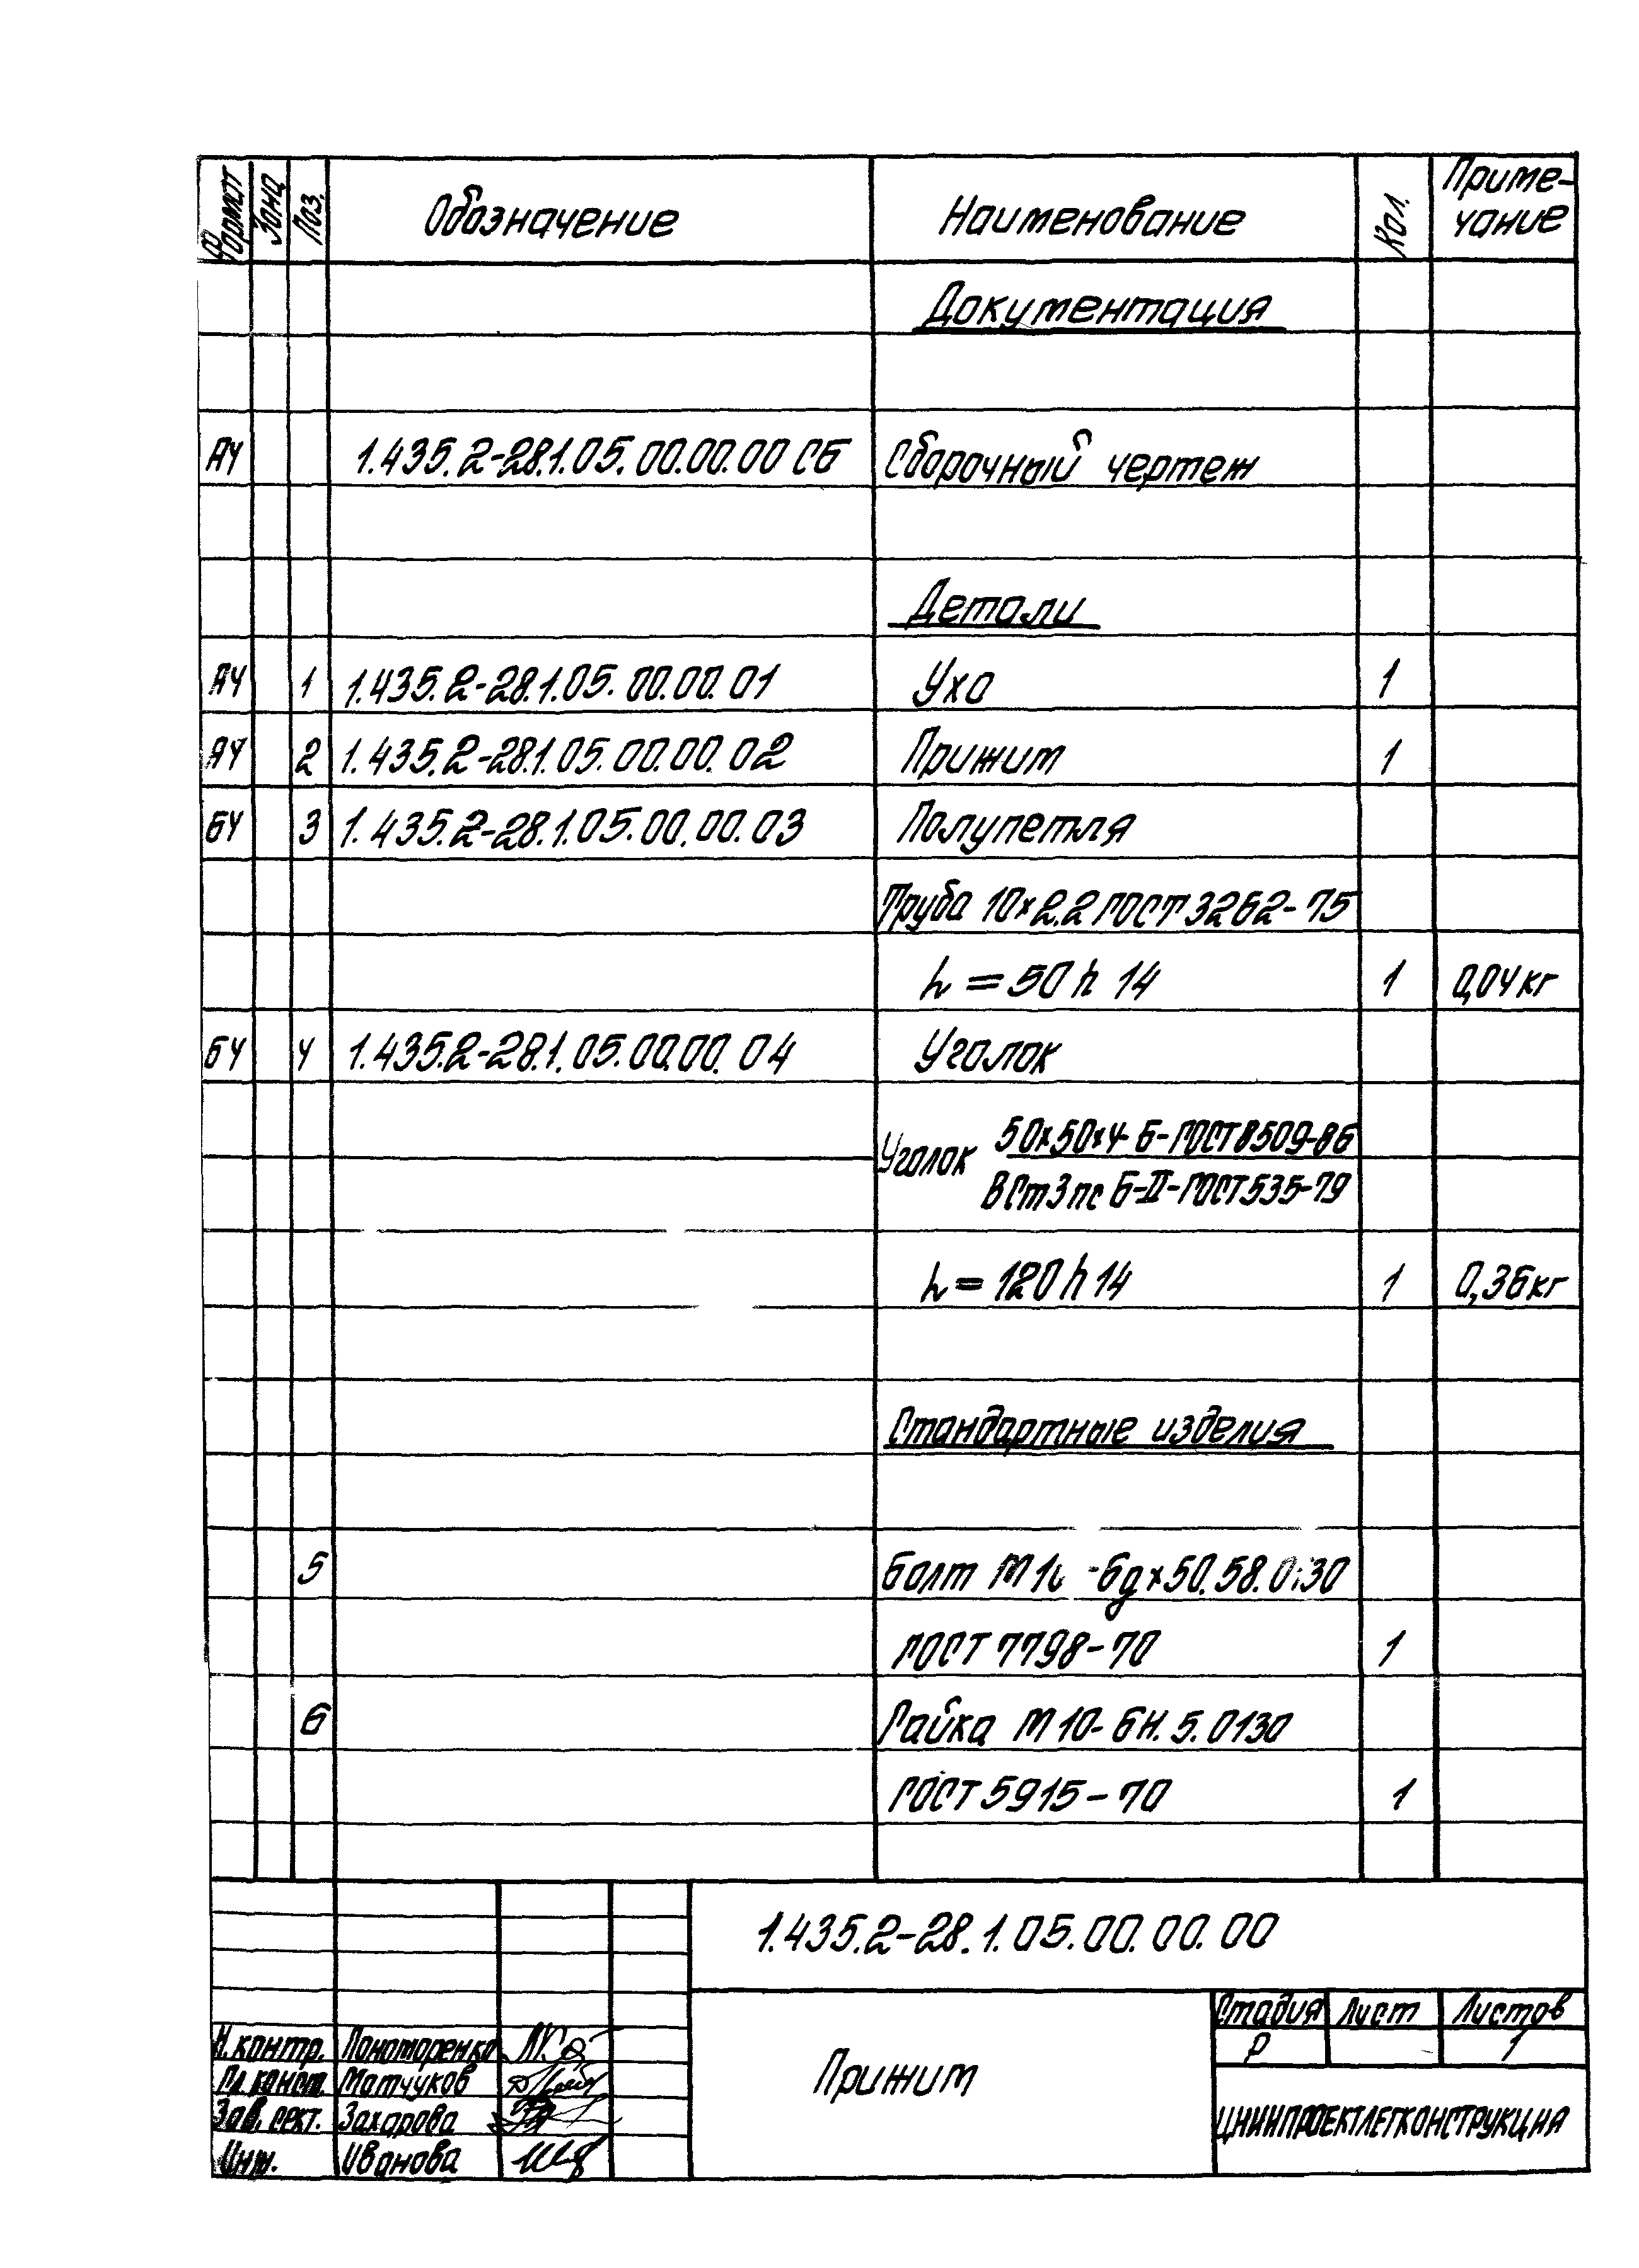 Формат Зона Поз. Обозначение Наименование Кол. Приме-
чание
Документация
А4 1.435.2-28.1.05.00.00.00 СБ Сборочный чертеж
Детали
А4 1 1.435.2-28.1.05.00.00.01 Ухо 1
А4 2 1.435.2-28.1.05.00.00.02 Прижим 1
БЧ 3 1.435.2-28.1.05.00.00.03 Полупетля
Труба 10×2.2 ГОСТ 3262-75
h = 50 h 14 1 0,04 кг
БЧ 4 1.435.2-28.1.05.00.00.04 Уголок
Уголок 50×50×4-Б-ГОСТ 8509-86
ВСт3пс Б-II-ГОСТ 535-79
h = 120 h 14 1 0,36 кг
Стандартные изделия
5 Болт -6g×50.58.0130
ГОСТ 7798-70 1
6 Гайка М10-6Н.5.0130
ГОСТ 5915-70 1
1.435.2-28.1.05.00.00.00
Прижим
Стадия Лист Листов
Р 1
ЦНИИПРОЕКТЛЕГКОНСТРУКЦИЯ
Н.контр. Пономоренко
Гл. конст. Матчуков
Зав. сект. Захарова
Инж. Иванова